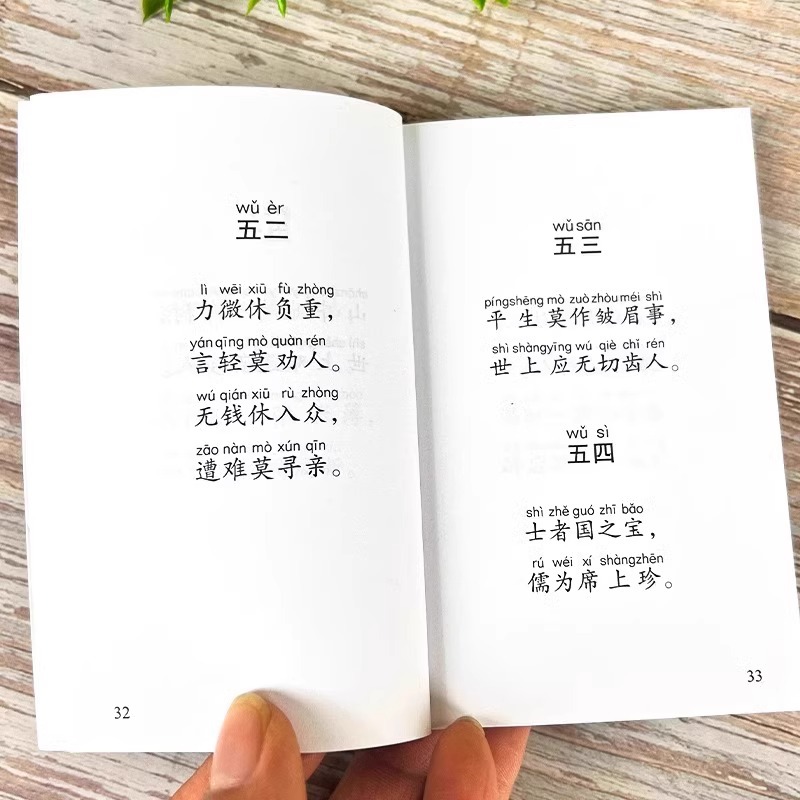 wǔ èr
五二
lì wēi xiū fù zhòng
力微休负重，
yán qīng mò quàn rén
言轻莫劝人。
wú qián xiū rù zhòng
无钱休入众，
zāo nàn mò xún qīn
遭难莫寻亲。
32
wǔ sān
五三
píng shēng mò zuò zhòu méi shì
平生莫作皱眉事，
shì shàng yīng wú qiè chǐ rén
世上应无切齿人。
wǔ sì
五四
shì zhě guó zhī bǎo
士者国之宝，
rú wéi xí shàng zhēn
儒为席上珍。
33